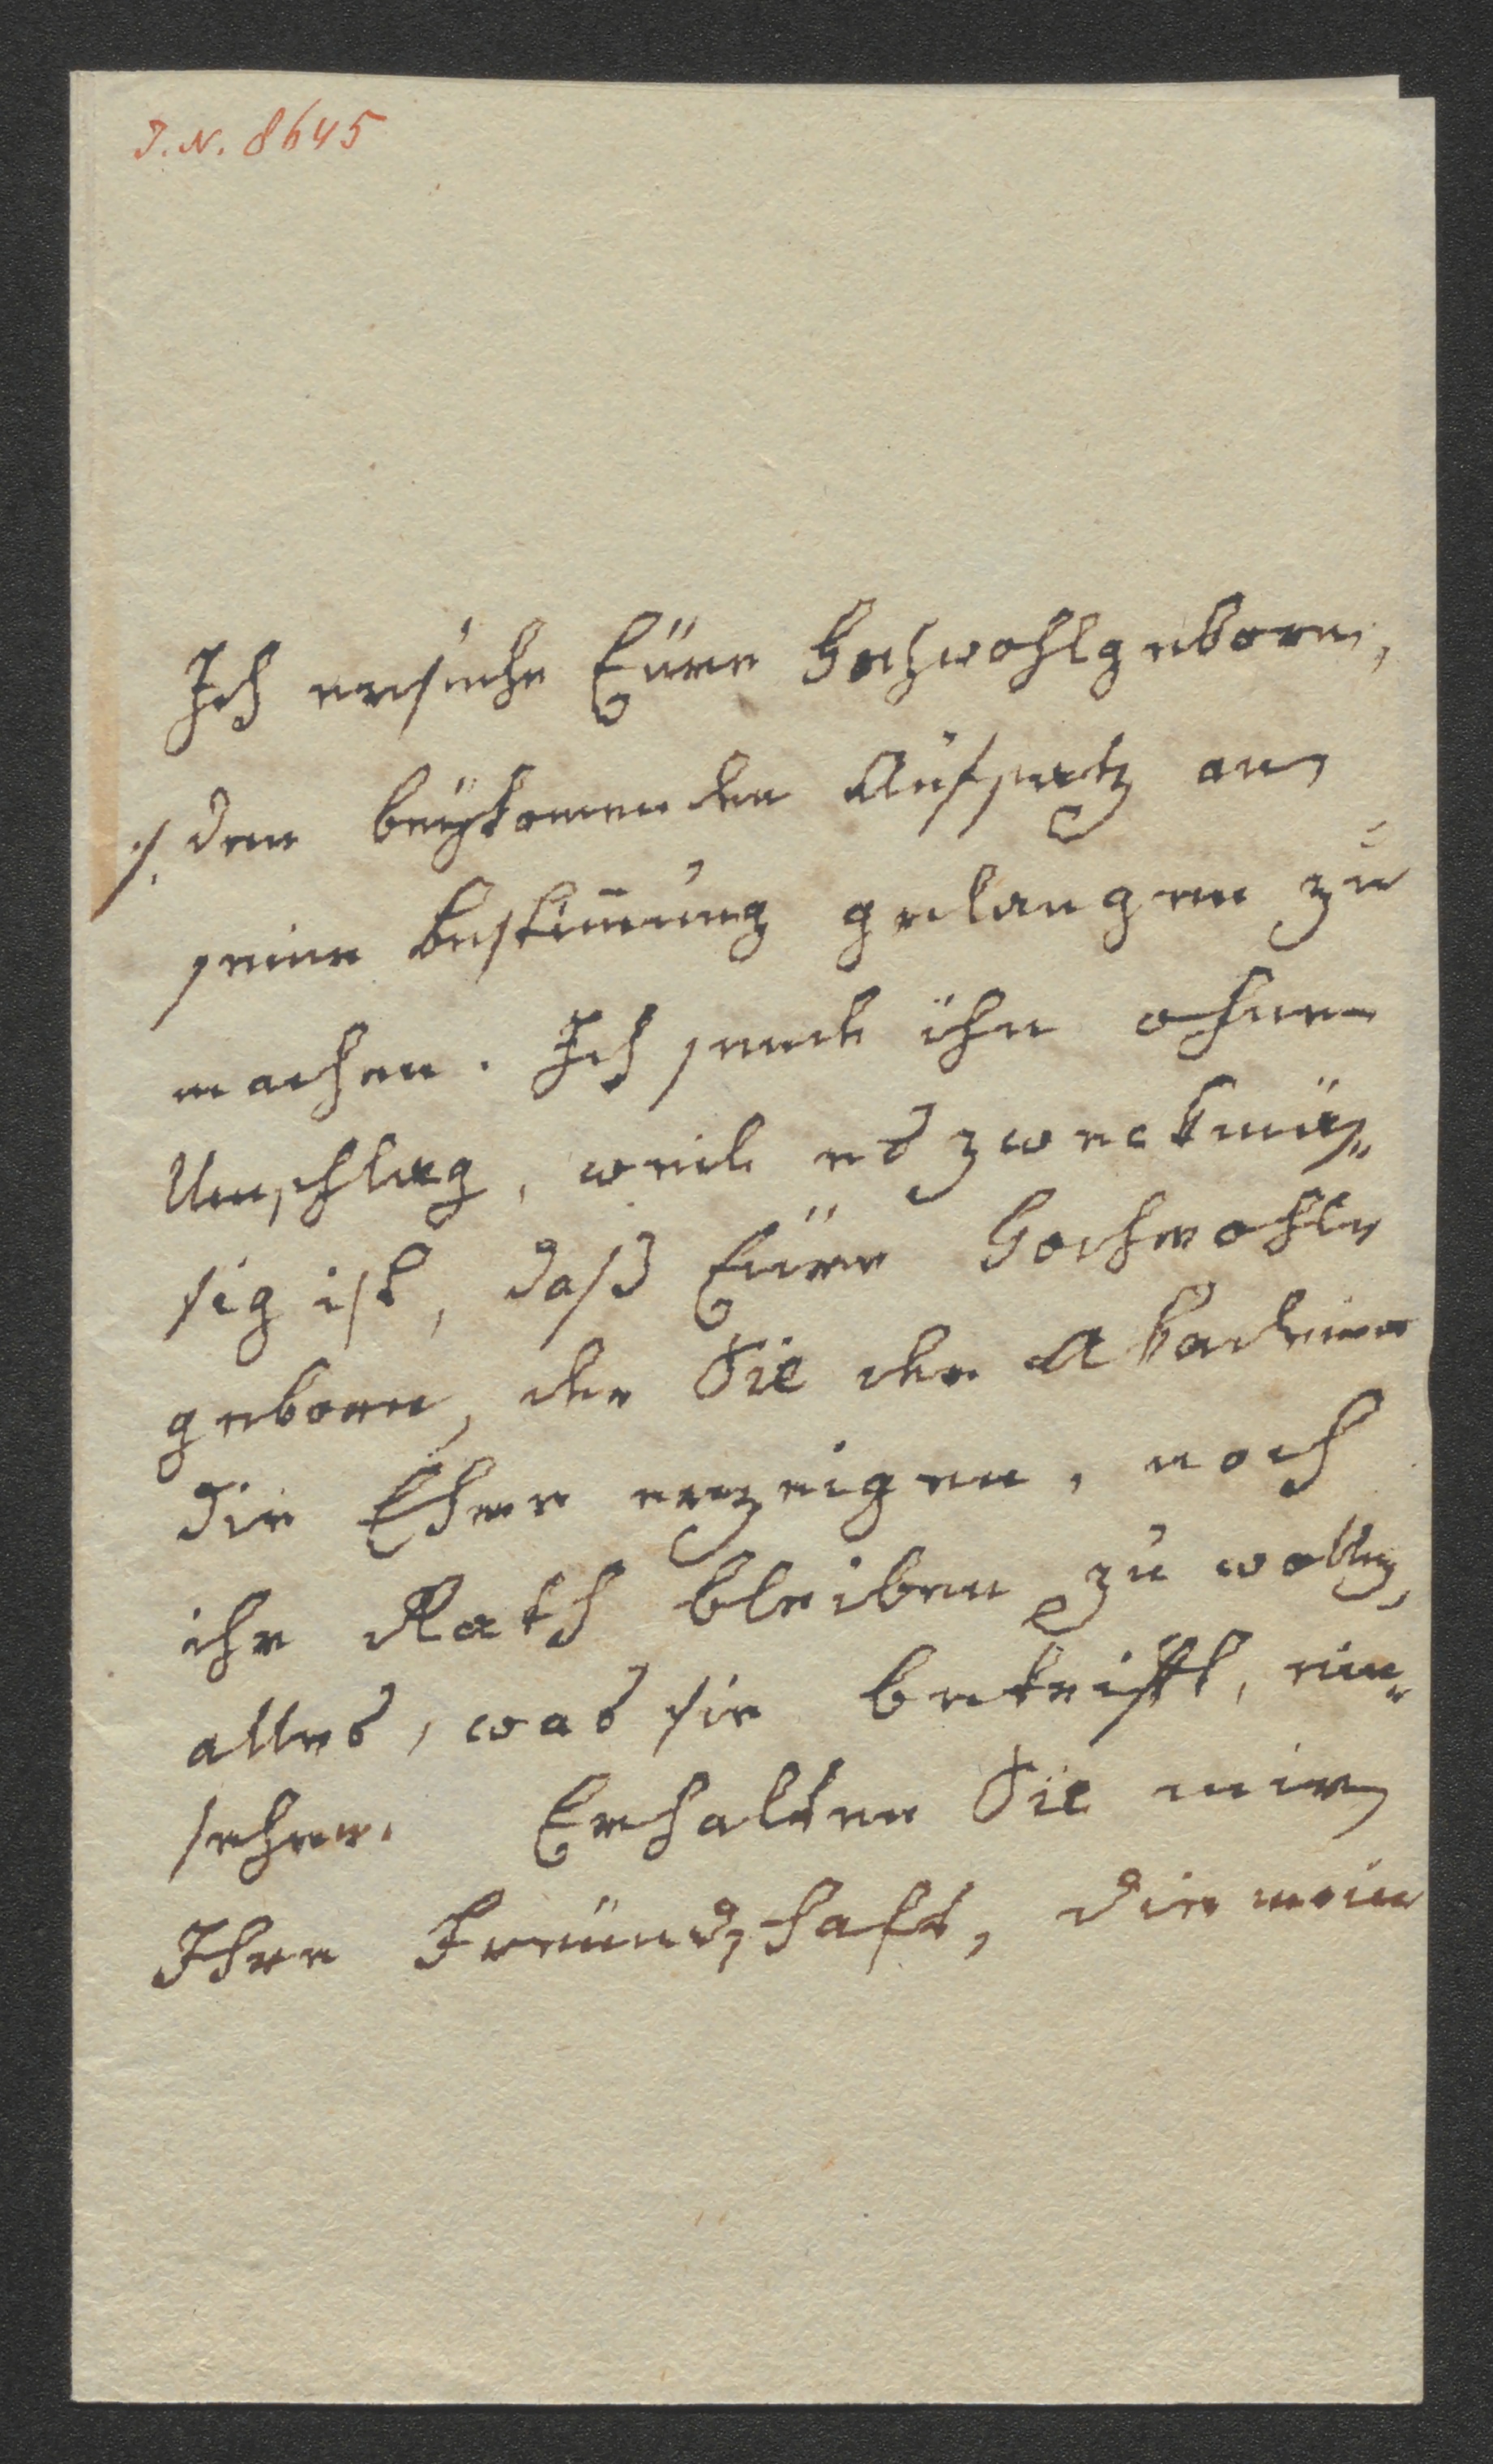 J.N. 8645
Ich ersuche Eüre Hochwohlgeborn,
./. den beÿkomenden Aufsatz an
seine Bestim̄ung gelangen zu
machen. Ich sende ihn ohne
Umschlag, weil es zweckmäs„
sig ist, daß Eüre Hochwohl„
geborn, der Sie der Akademie
die Ehre erzeigen, noch
ihr Rath bleiben zu wollen,
alles, was sie betrifft, ein„
sehen. Erhalten Sie mir
Ihre Freündschaft, die mein